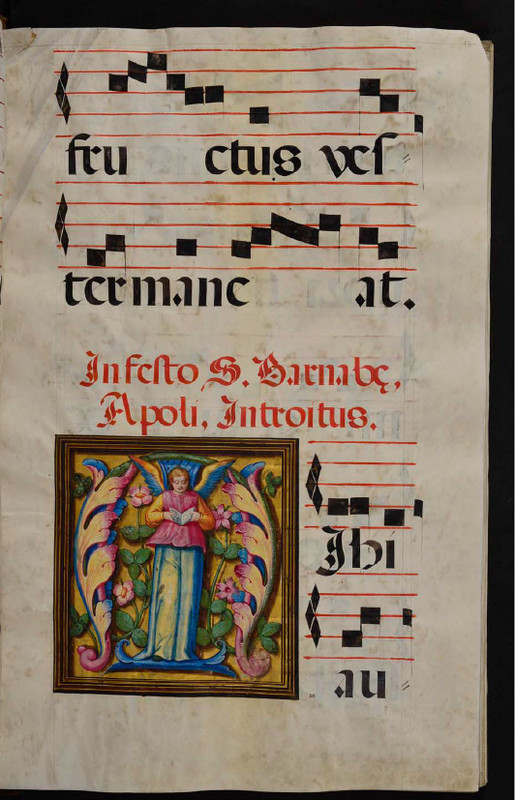 fru ctus ves=
ter mane at.
In festo S. Barnabę,
Apoli, Introitus.
M Ihi
au=